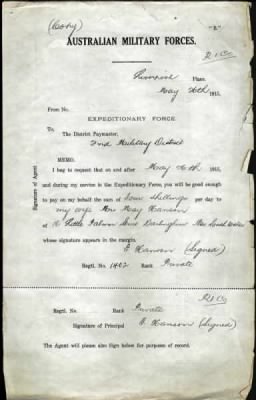 (Copy)
"B"
AUSTRALIAN MILITARY FORCES.
Liverpool Place.
May 26th 1915.
From No.
EXPEDITIONARY FORCE.
To
The District Paymaster,
2nd Military District
MEMO.
I beg to request that on and after May 26th 1915,
and during my service in the Expeditionary Force, you will be good enough
to pay on my behalf the sum of four shillings per day to
my wife Mrs May Hanson
at Little Darlinghurst New South Wales
whose signature appears in the margin.
Hanson (Signed)
Regtl. No. 1402 Rank Private
Signature of Agent
Regtl. No. Rank Private
Signature of Principal Hanson (Signed)
The Agent will please also Sign below for purposes of record.